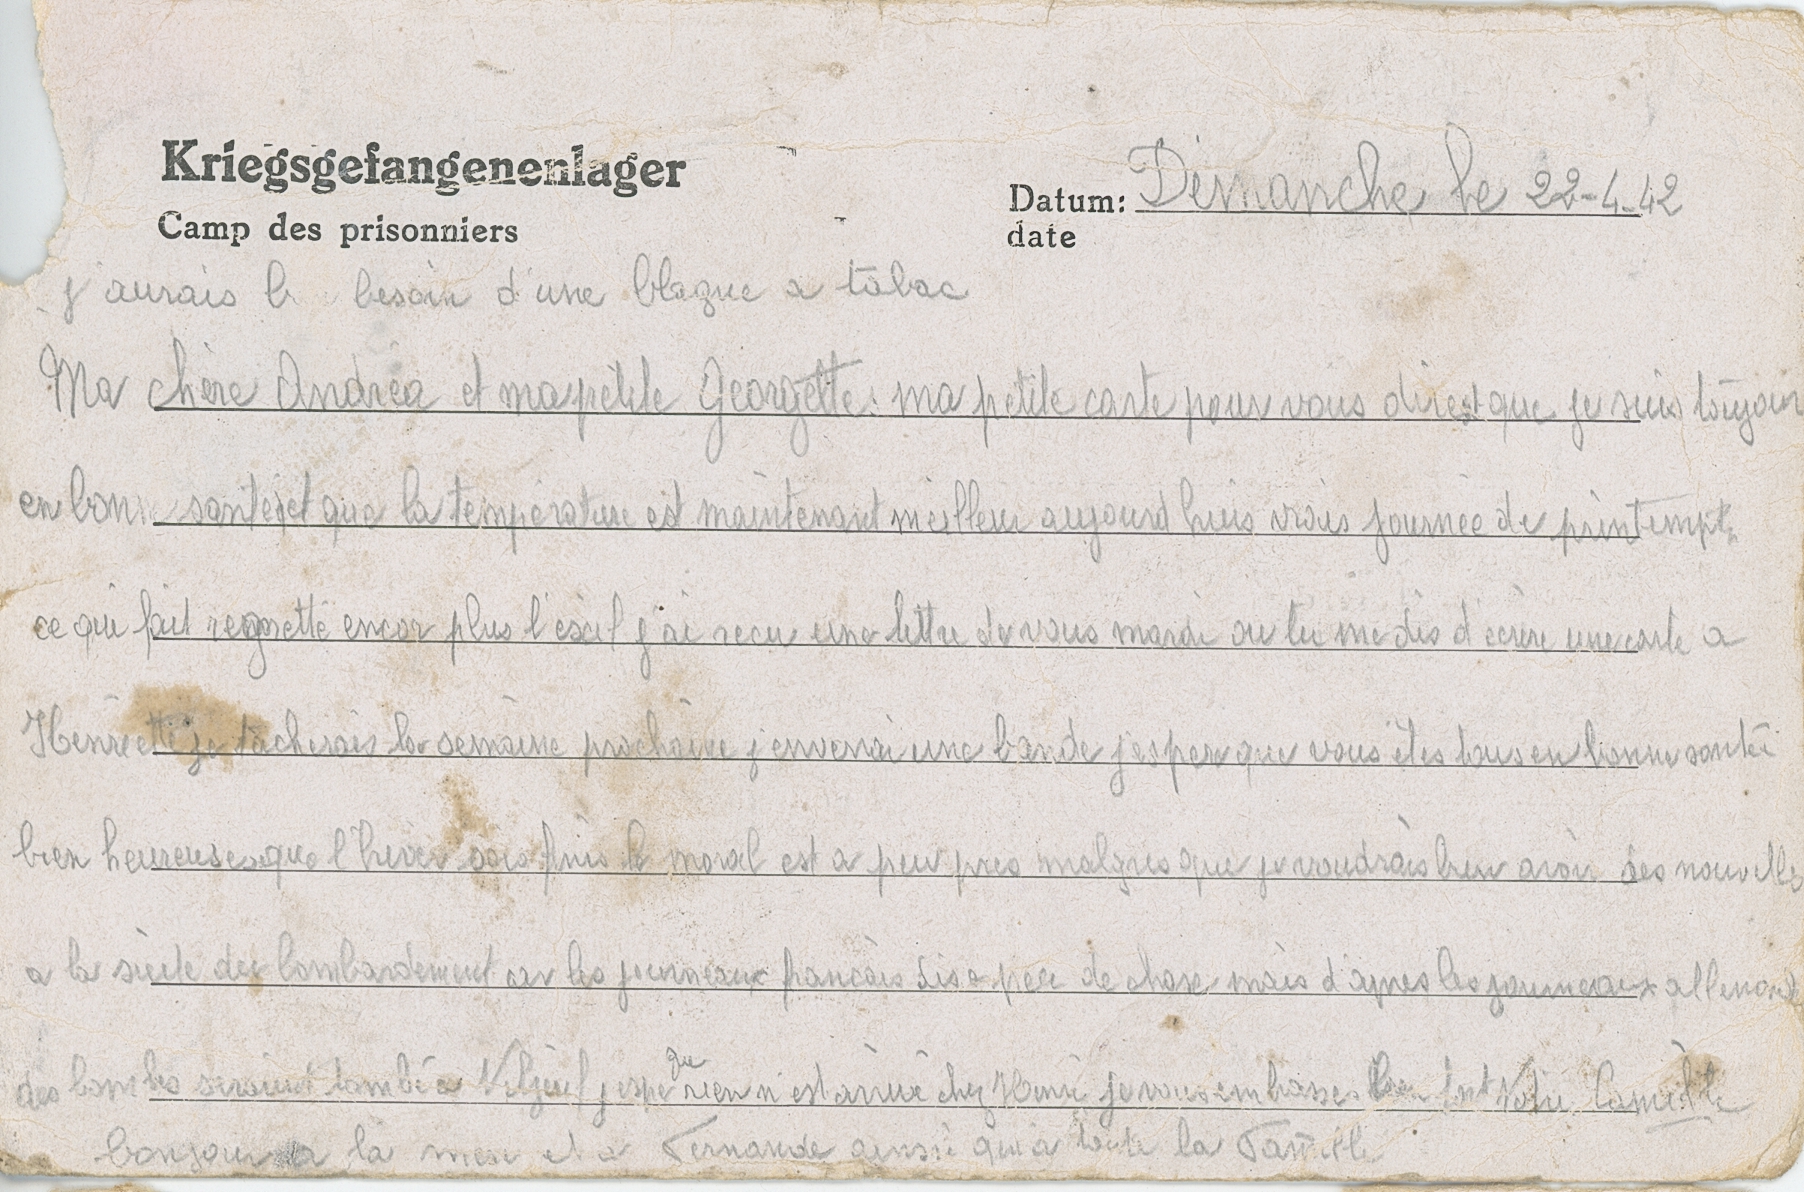 Kriegsgefangenenlager
Camp des prisonniers
Datum: Dimanche le 22-4-42
date
j'aurais besoin d'une blague a tabac
Ma chère Andréa et ma petite Georgette: ma petite carte pour vous dires que je suis toujour
en bonne santé et que la température est maintenant meilleur aujourd huis vrais journée de printempt
ce qui fait regretté encor plus l'exil j'ai recu une lettre de vous mardi ou tu me dis d'écrire une carte a
Henriette je tacherais la semaine prochaine j'enverai une bande j'esper que vous êtes tous en bonne santé
bien heureuse que l'hiver sois finis le moral est a peu pres malgres que je voudrais bien avoir des nouvelles
a la suite des bombardement car les journeaux francais dise peu de chose mais d'apres les journeaux allemand
des bombes seraient tombé a j'esper que rien n'est arrivé chez Henri je vous embrasse bien fort Votre Camille
bonjour a la mere et a Fernande ainsi qu'a toute la Famille